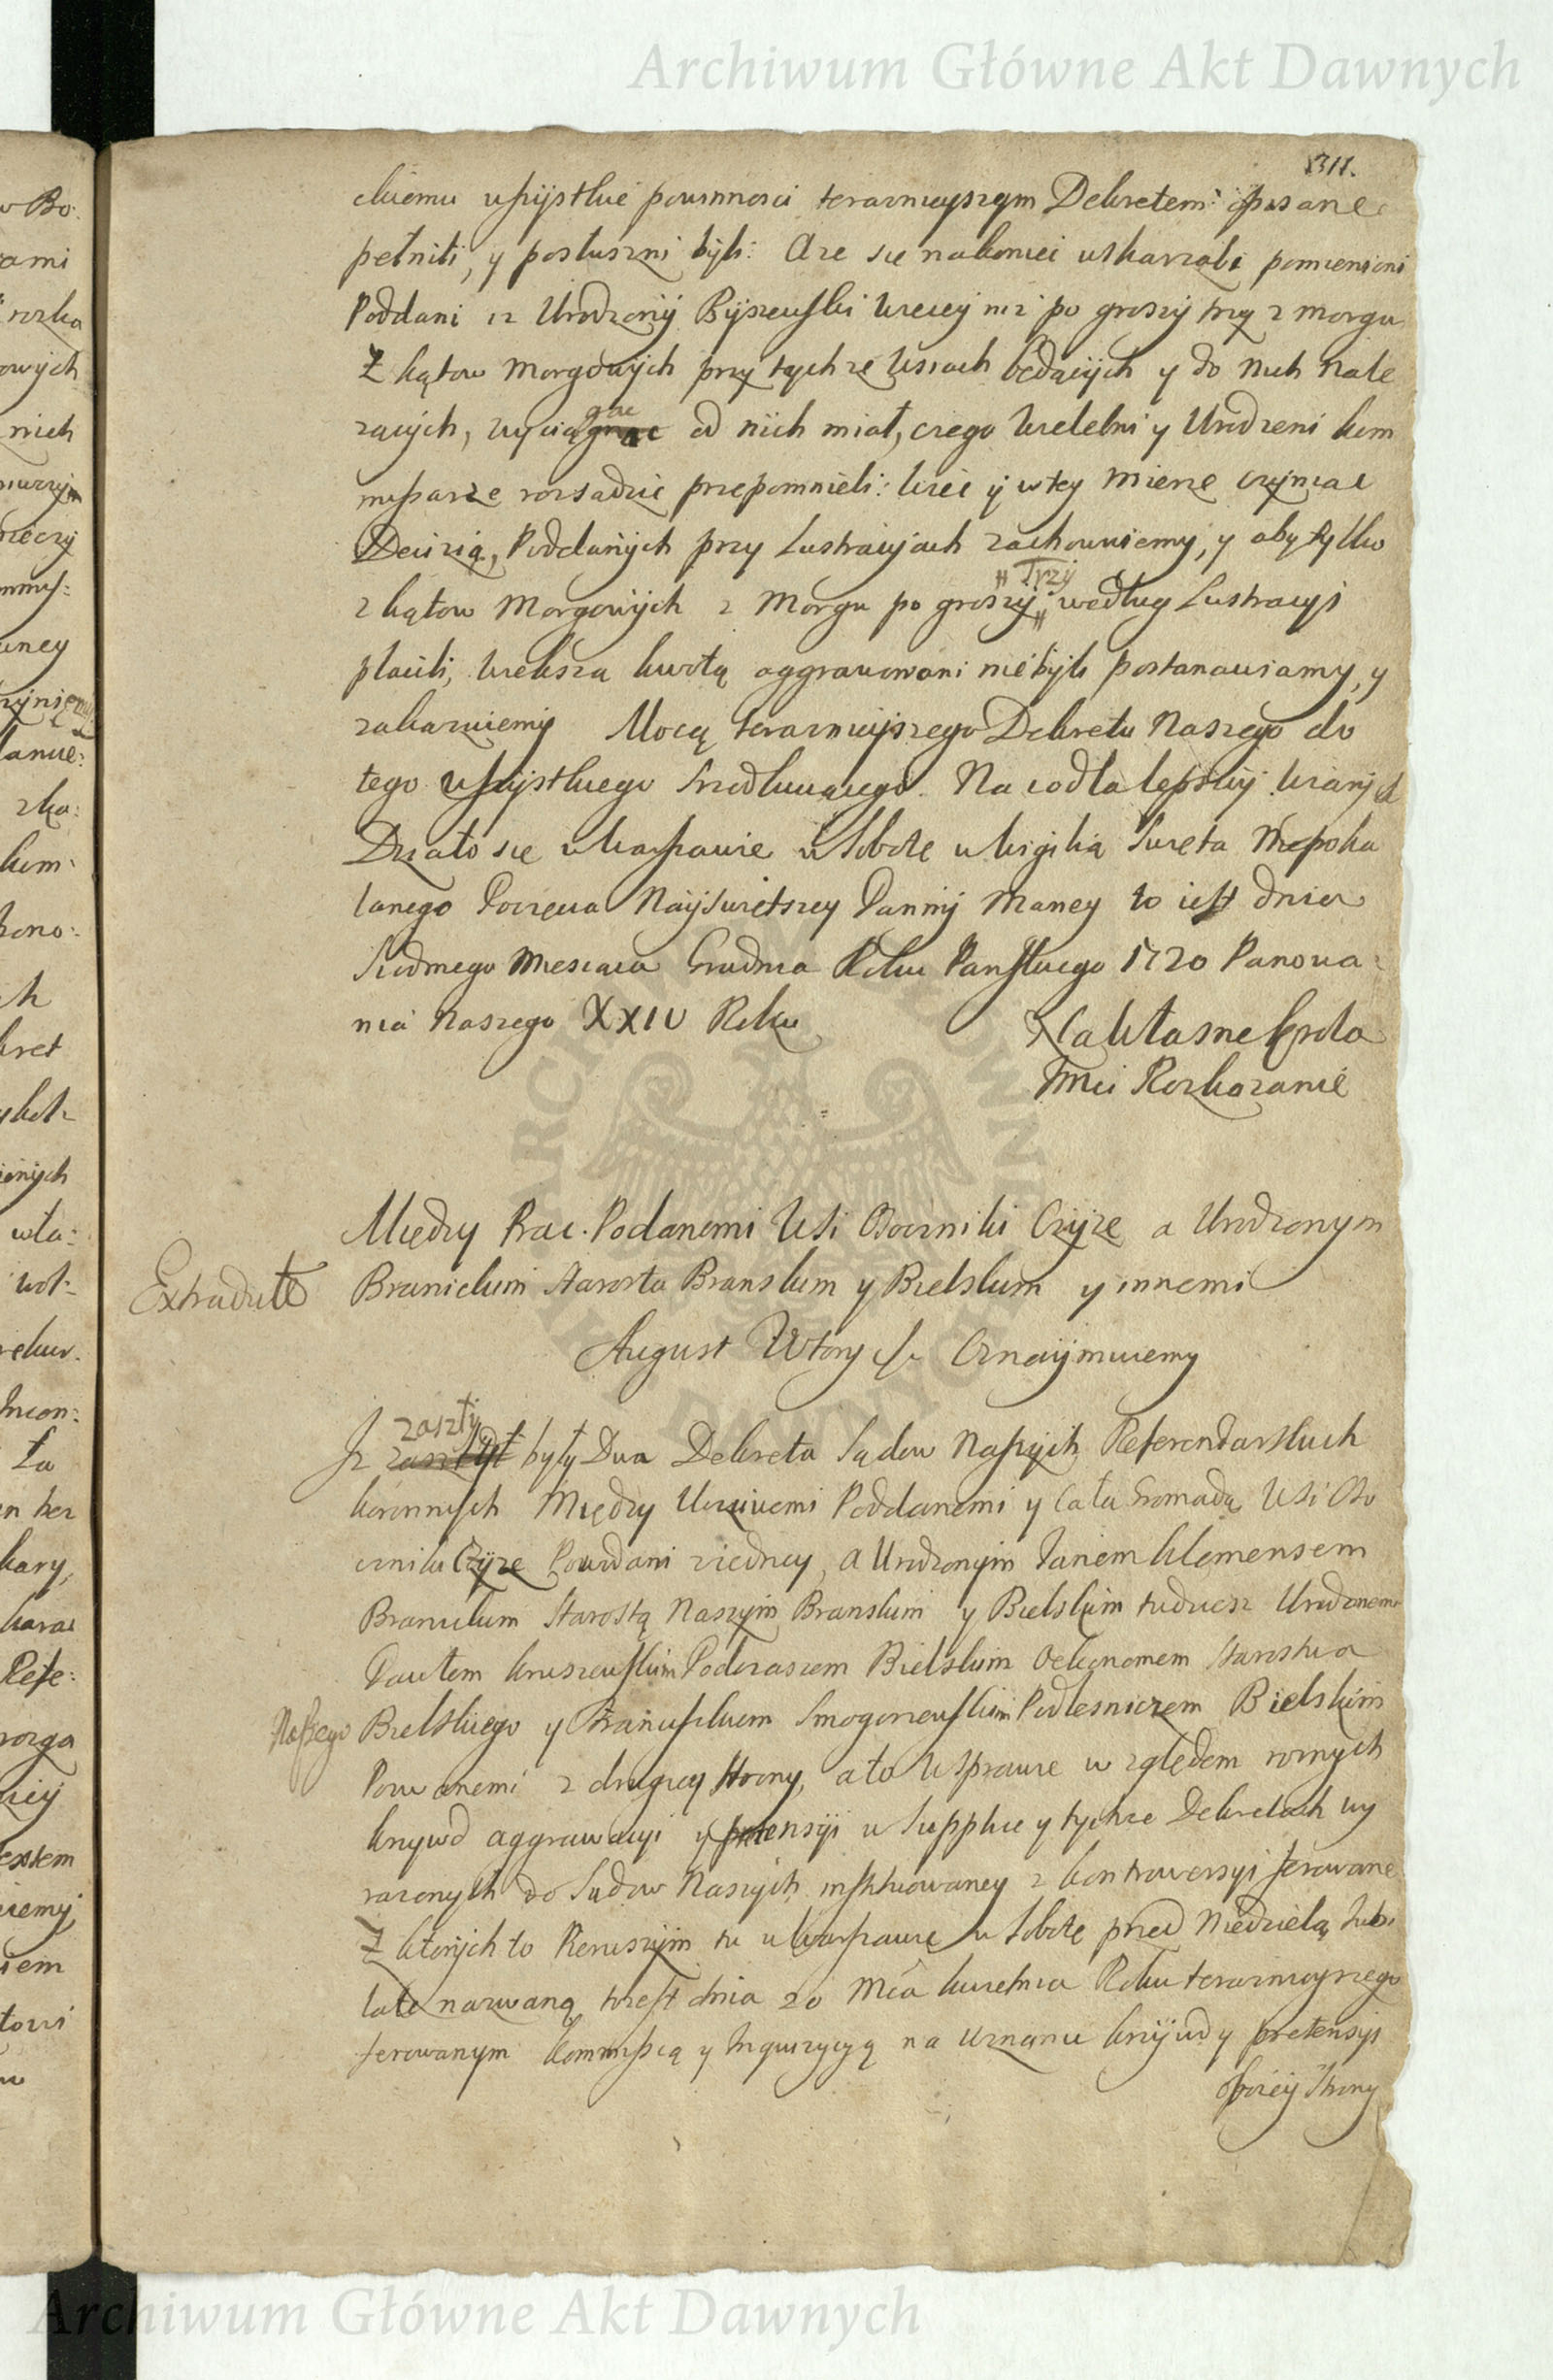 Archiwum Główne Akt Dawnych
311.
ckiemu wszystkie powinnosci teraznieyszym Dekretem opisane
pełnili, y posłuszni byli: A ze się nakoniec uskarzali pomienieni
Poddani iz Urodzony Byszewski wiecey niz po groszy trzy z morgu
Z kątow morgowych przy tychze wsiach będących y do nich nale
zących, wyciągac od nich miał, czego Wielebni y Urodzeni kom
missarze rozsadzic przepomnieli: wiec y w tey mierze czyniąc
Decizią, Poddanych przy Lustracyach zachowuiemy, y aby tylko
z kątow Morgowych z Morgu po groszy Trzy według Lustracyi
płacili, wieksza kwotą aggrawowani nie byli postanawiamy, y
zakazuiemy Mocą teraznieyszego Dekretu Naszego do
tego wszystkiego Na co dla lepszey wiary etc
Działo się w Warszawie w Sobotę w Wigilią Swięta Niepoka
lanego Poczęcia Nayswiętszey Panny Maryey to iest dnia
Siodmego Miesiaca Grudnia Roku Panskiego 1720 Panowa:
nia Naszego XXIV Roku
Na Własne Krola
Jmci Rozkazanie
Między Prac. Podanemi Wsi Osoczniki Czyze a Urodzonym
Extradute
Branickim Starosta Branskim y Bielskim y innemi
August Wtory etc Oznaymuiemy
Iz zaszły były Dwa Dekreta Sądow Naszych Referendarskich
koronnych Między Uczciwemi Poddanemi y Całą Gromadą Wsi Oso
czniki Czyze Powodami z iedney, a Urodzonym Janem Klemensem
Branickim Starostą Naszym Branskim y Bielskim tudziesz Urodzonemi
Pawłem Kruszewskim Podczaszem Bielskim Oekonomem Starostwa
Naszego Bielskiego y Franciszkiem Smogorzewskim Podlesniczem Bielskim
Pozwanemi z drugiey strony, a to w sprawie w zględem roznych
krzywd aggrawacyi y pretensyi w Supplice y tychze Dekretach wy
razonych do Sądow Naszych instituowaney z kontrowersyi ferowane
Z ktorych to Pierwszym tu w Warszawie w Sobotę przed Niedzielą Jubi
late nazwaną, to iest dnia 20 Mca kwietnia Roku teraznieyszego
ferowanym kommissią y Inquizycyą na uznanie krzywd y pretensyi
oboiey strony
Archiwum Główne Akt Dawnych